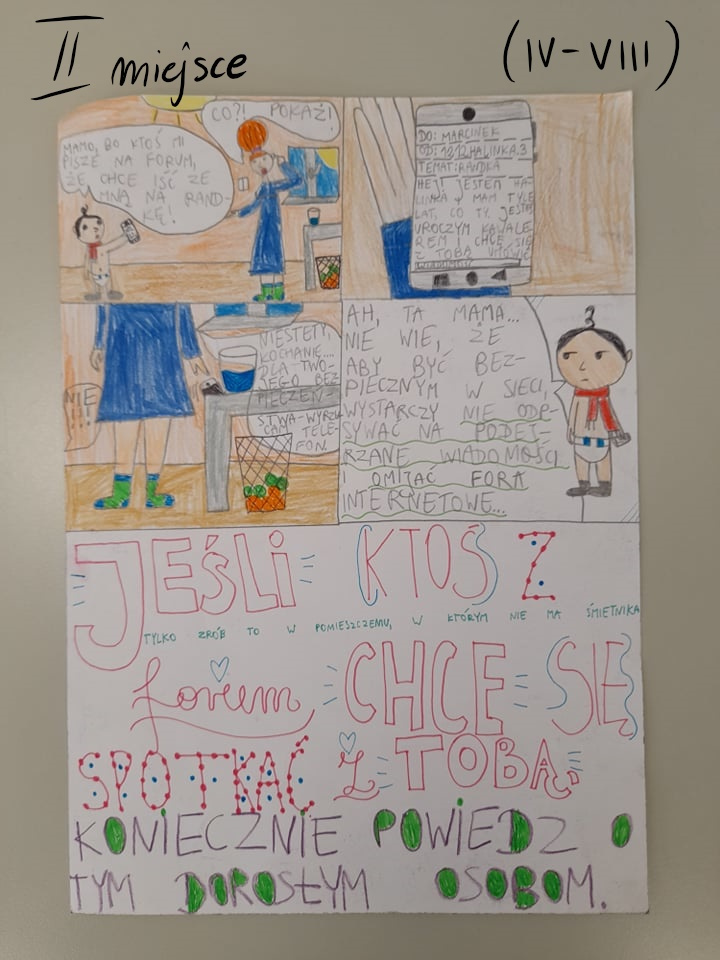 II miejsce
(IV-VIII)
MAMO, BO KTOŚ MI
PISZE NA FORUM,
ŻE CHCE IŚĆ ZE
MNĄ NA RAND-
KĘ!
CO?! POKAŻ!
DO: MARCINEK
OD: 1212HALINKA.3
TEMAT: RANDKA
HEJ! JESTEM HA-
LINKA I MAM TYLE
LAT, CO TY. JESTEŚ
UROCZYM KAWALE-
REM I CHCĘ SIĘ
Z TOBĄ UMÓWIĆ
NIE
!!!
NIESTETY,
KOCHANIE...
DLA TWO-
JEGO BEZ-
PIECZEŃ-
STWA-WYRZU-
CAM TELE-
FON.
AH, TA MAMA...
NIE WIE, ŻE
ABY BYĆ BEZ-
PIECZNYM W SIECI,
WYSTARCZY NIE ODP-
SYWAĆ NA PODEJ-
RZANE WIADOMOŚCI
I OMIJAĆ FORA
INTERNETOWE...
JEŚLI KTOŚ Z
TYLKO ZRÓB TO W POMIESZCZEMU, W KTÓRYM NIE MA ŚMIETNIKA
forum CHCE SIĘ
SPOTKAĆ Z TOBĄ
KONIECZNIE POWIEDZ O
TYM DOROSŁYM OSOBOM.